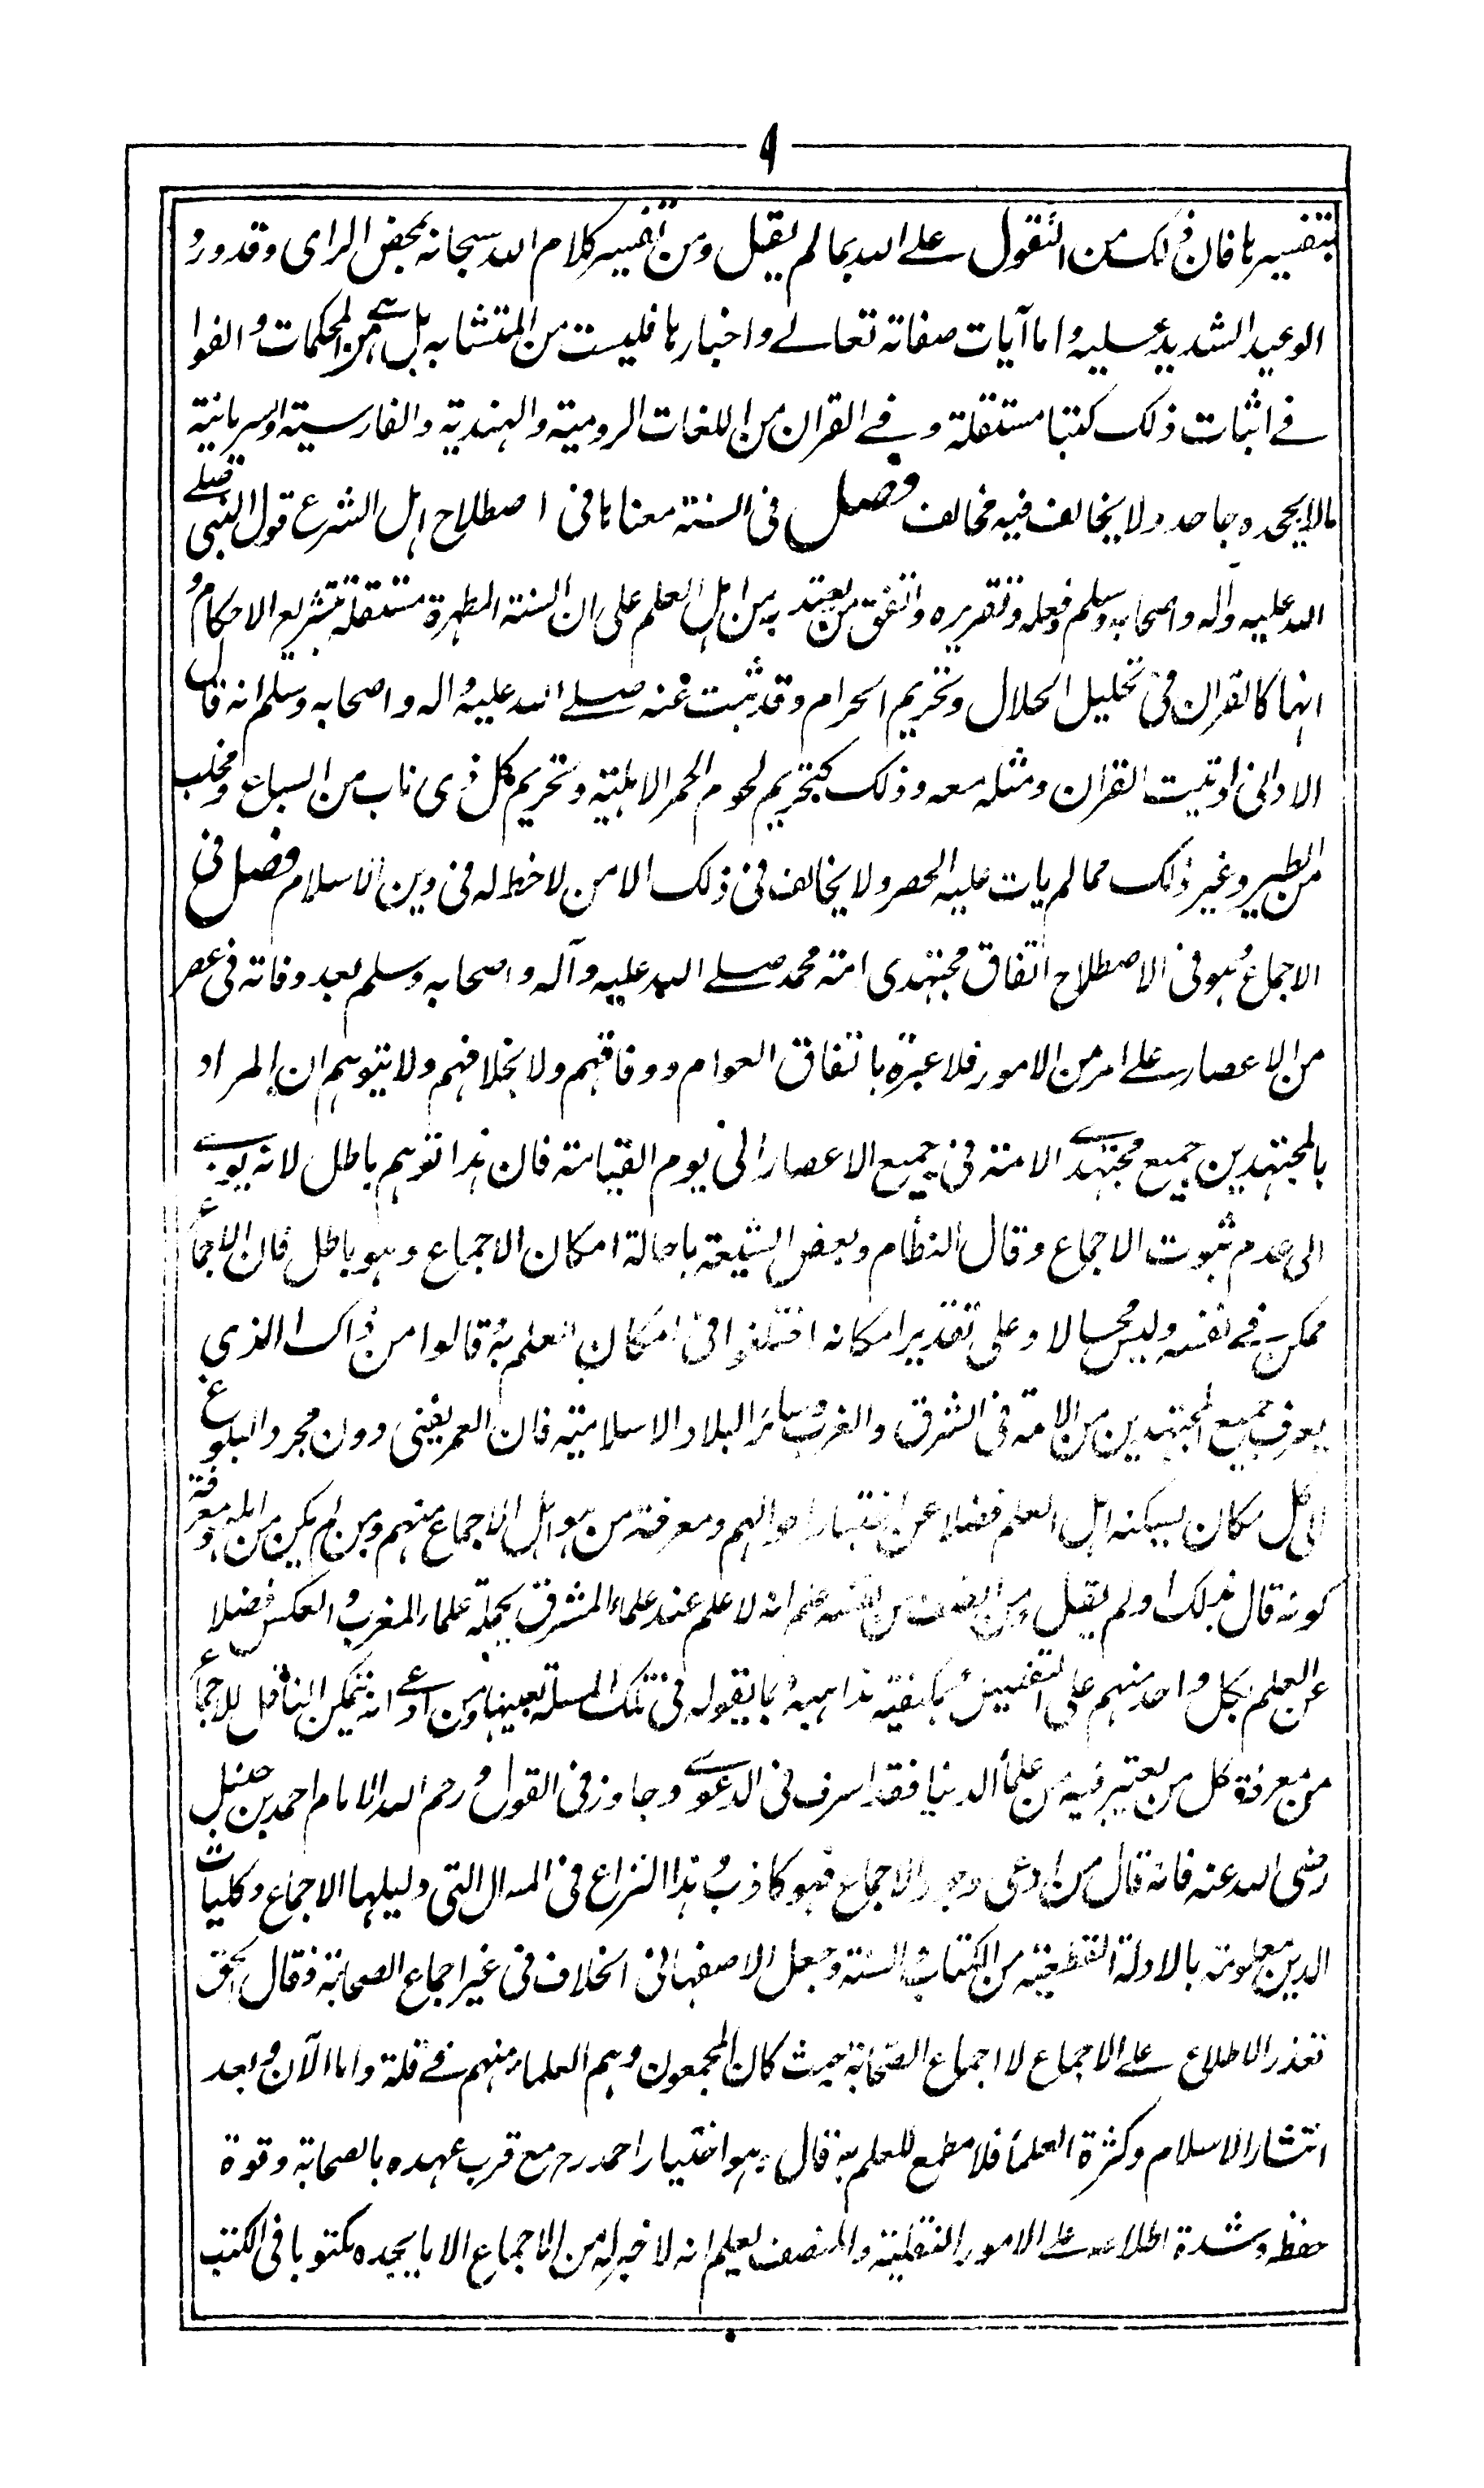 ٩
بتفسيرها فان ذلك من التقول على الله بما لم يقل ومن تفسير كلام الله سبحانه بمحض الراى وقد ورد
الوعيد الشديد عليه واما آيات صفاته تعالى واخبارها فليست من المتشابه بل هى من المحكمات والفوا
فى اثبات ذلك كتبا مستقلة وفى القران من اللغات الرومية والهندية والفارسية والسريانية
مالا يجحده جاحد ولا يخالف فيه مخالف فصل فى السنة معناها فى اصطلاح اهل الشرع قول النبى صلى
الله عليه وآله واصحابه وسلم وفعله وتقريره واتفق من يعتد به من اهل العلم على ان السنة المطهرة مستقلة بتشريع الاحكام و
انها كالقران فى تحليل الحلال وتحريم الحرام وقد ثبت عنه صلى الله عليه واله واصحابه وسلم انه قال
الا وانى اوتيت القران ومثله معه وذلك كتحريم لحوم الحمر الاهلية وتحريم كل ذى ناب من السباع ومخلب
من الطير وغير ذلك مما لم يات عليه الحصر ولا يخالف فى ذلك الا من لا حظ له فى دين الاسلام فصل فى
الاجماع وهو فى الاصطلاح اتفاق مجتهدى امة محمد صلى الله عليه وآله واصحابه وسلم بعد وفاته فى عصر
من الاعصار على امر من الامور فلا عبرة باتفاق العوام ووفاقهم ولا بخلافهم ولا يتوهم ان المراد
بالمجتهدين جميع مجتهدى الامة فى جميع الاعصار الى يوم القيامة فان هذا توهم باطل لانه يودى
الى عدم ثبوت الاجماع وقال النظام وبعض الشيعة باحالة امكان الاجماع وهو باطل فان الاجماع
ممكن فى نفسه وليس محالا وعلى تقدير امكانه اختلفوا فى امكان العلم به وقالوا من ذاك الذى
يعرف جميع المجتهدين من الامة فى الشرق والغرب وسائر البلاد الاسلامية فان العمر يفنى دون مجرد البلوغ
الى كل مكان يسكنه اهل العلم فضلا عن اختبار احوالهم ومعرفة من هو اهل الاجماع منهم ومن لم يكن من اهله ومعرفة
كونه قال بذلك او لم يقل ومن انصف من نفسه علم انه لا علم عند علماء المشرق بجملة علماء المغرب والعكس فضلا
عن العلم بكل واحد منهم على التفصيل وبكيفية مذاهبه وبما يقوله فى تلك المسئلة بعينها ومن ادعى انه يتمكن الناقل للاجماع
من معرفة كل من يعتبر فيه من علماء الدنيا فقد اسرف فى الدعوى وجاوز فى القول ورحم الله الامام احمد بن حنبل
رضى الله عنه فانه قال من ادعى وجود الاجماع فهو كاذب وهذا النزاع فى المسائل التى دليلها الاجماع وكليات
الدين معلومة بالادلة القطعية من الكتاب والسنة وجعل الاصفهانى الخلاف فى غير اجماع الصحابة وقال الحق
تعذر الاطلاع على الاجماع لا اجماع الصحابة حيث كان المجمعون وهم العلماء منهم فى قلة واما الآن وبعد
انتشار الاسلام وكثرة العلماء فلا مطمع للعلم به قال وهو اختيار احمد رح مع قرب عهده بالصحابة وقوة
حفظه وشدة اطلاعه على الامور النقلية والمنصف يعلم انه لا خبر له من الاجماع الا ما يجده مكتوبا فى الكتب